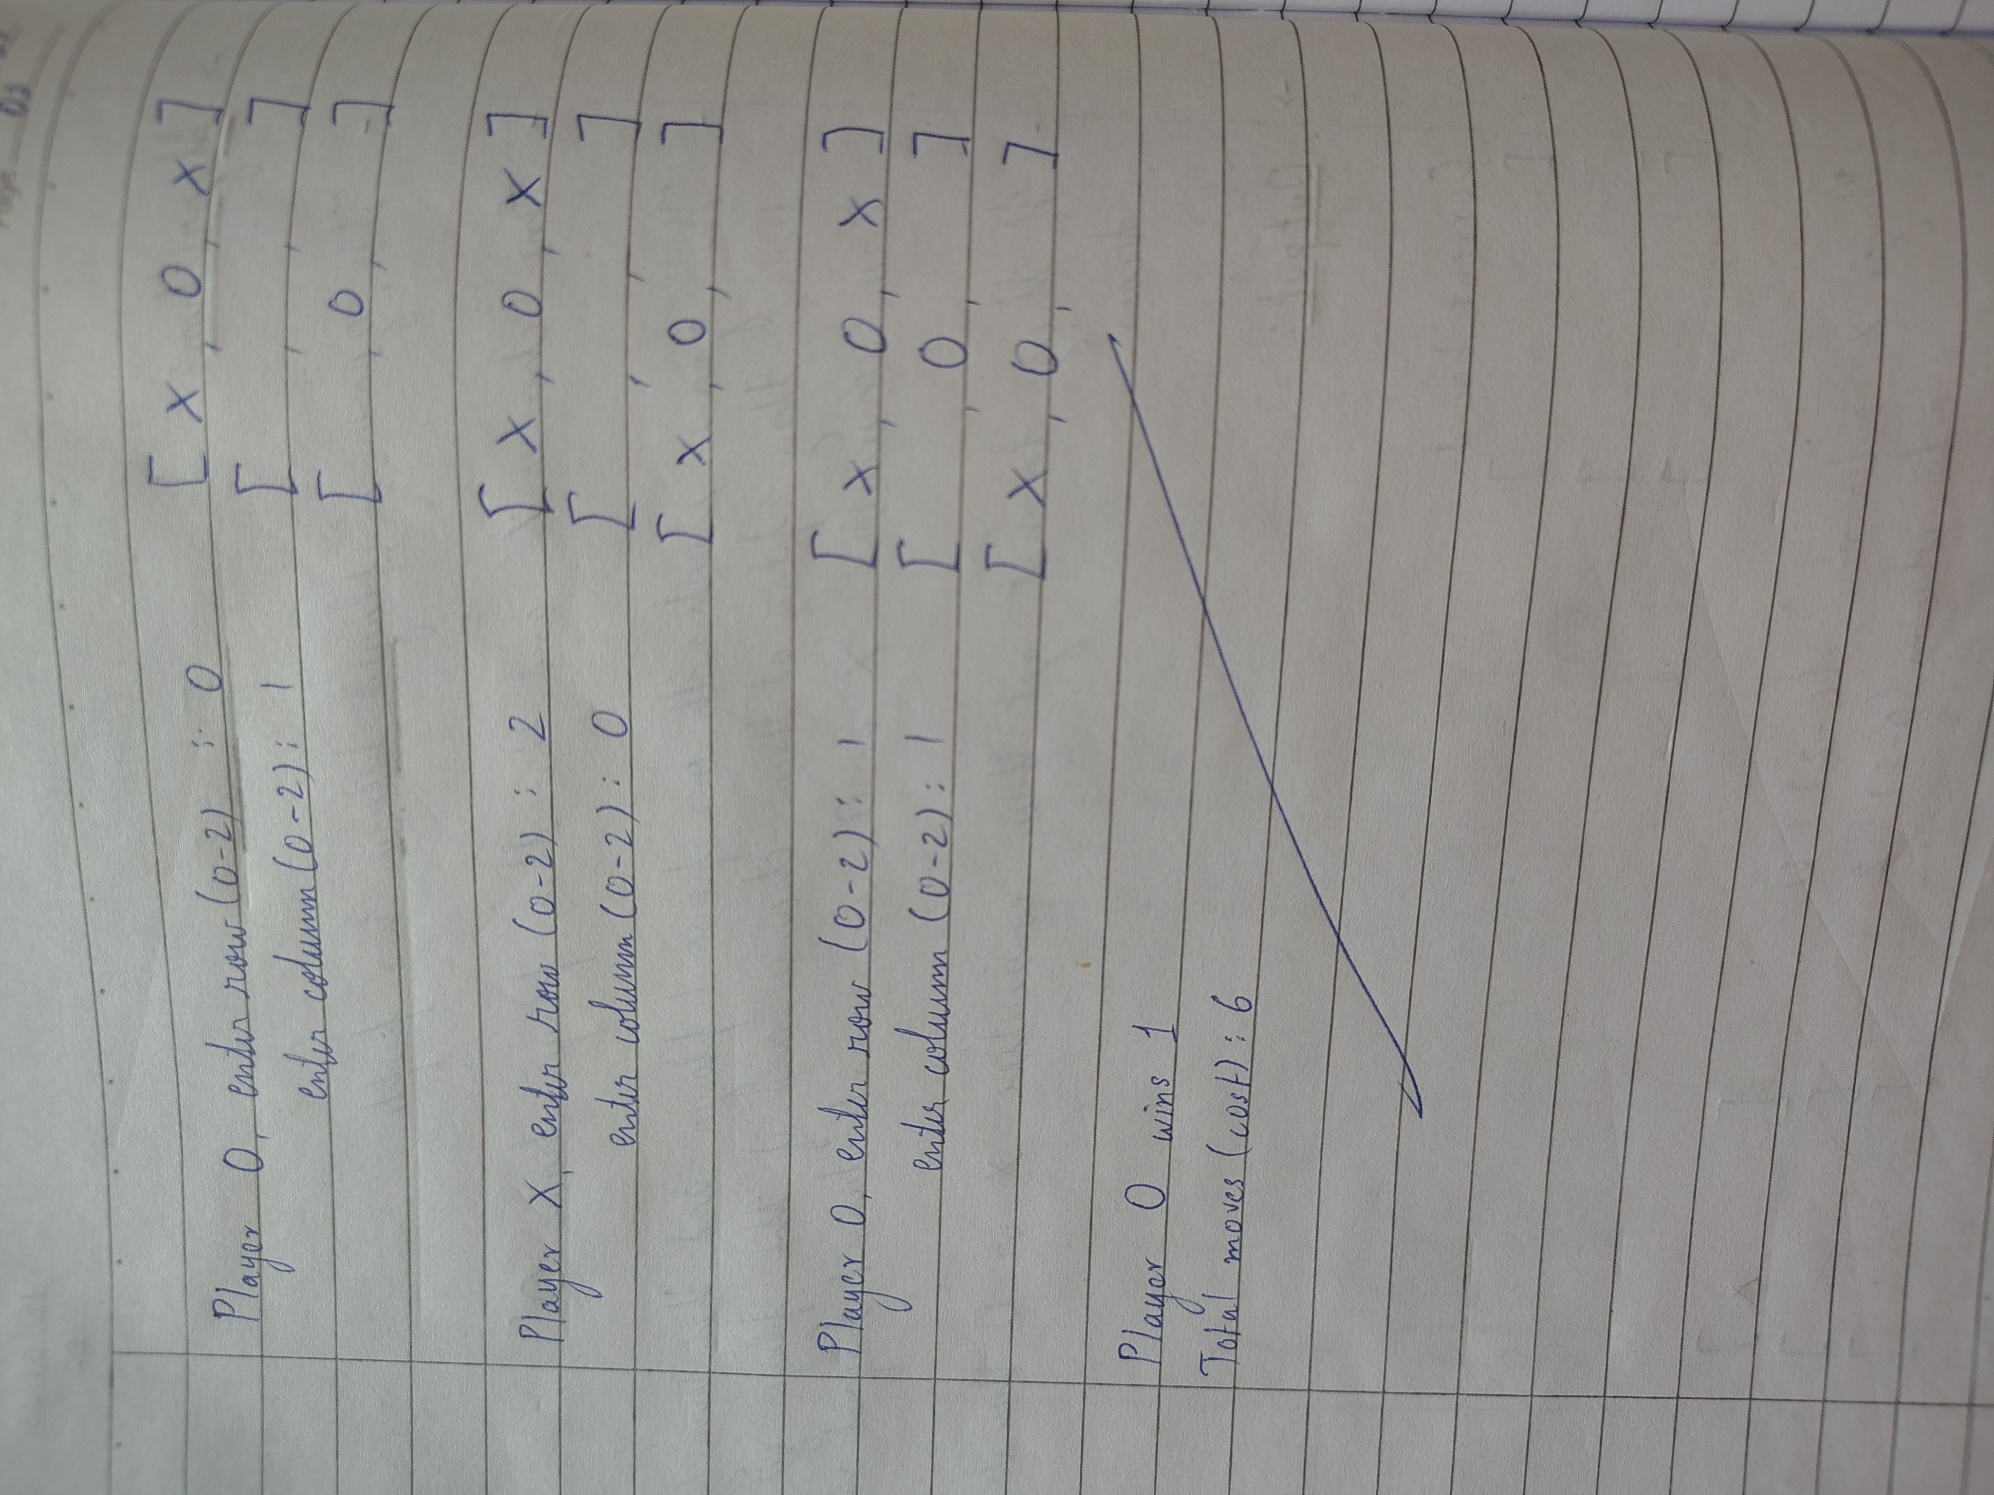 Player O, enter row (0-2) : 0 [ X , O , X ]
enter column (0-2) : 1 [ , , ]
[ , O , ]
Player X, enter row (0-2) : 2 [ X , O , X ]
enter column (0-2) : 0 [ , , ]
[ X , O , ]
Player O, enter row (0-2) : 1 [ X , O , X ]
enter column (0-2) : 1 [ , O , ]
[ X , O , ]
Player O wins 1
Total moves (cost) : 6